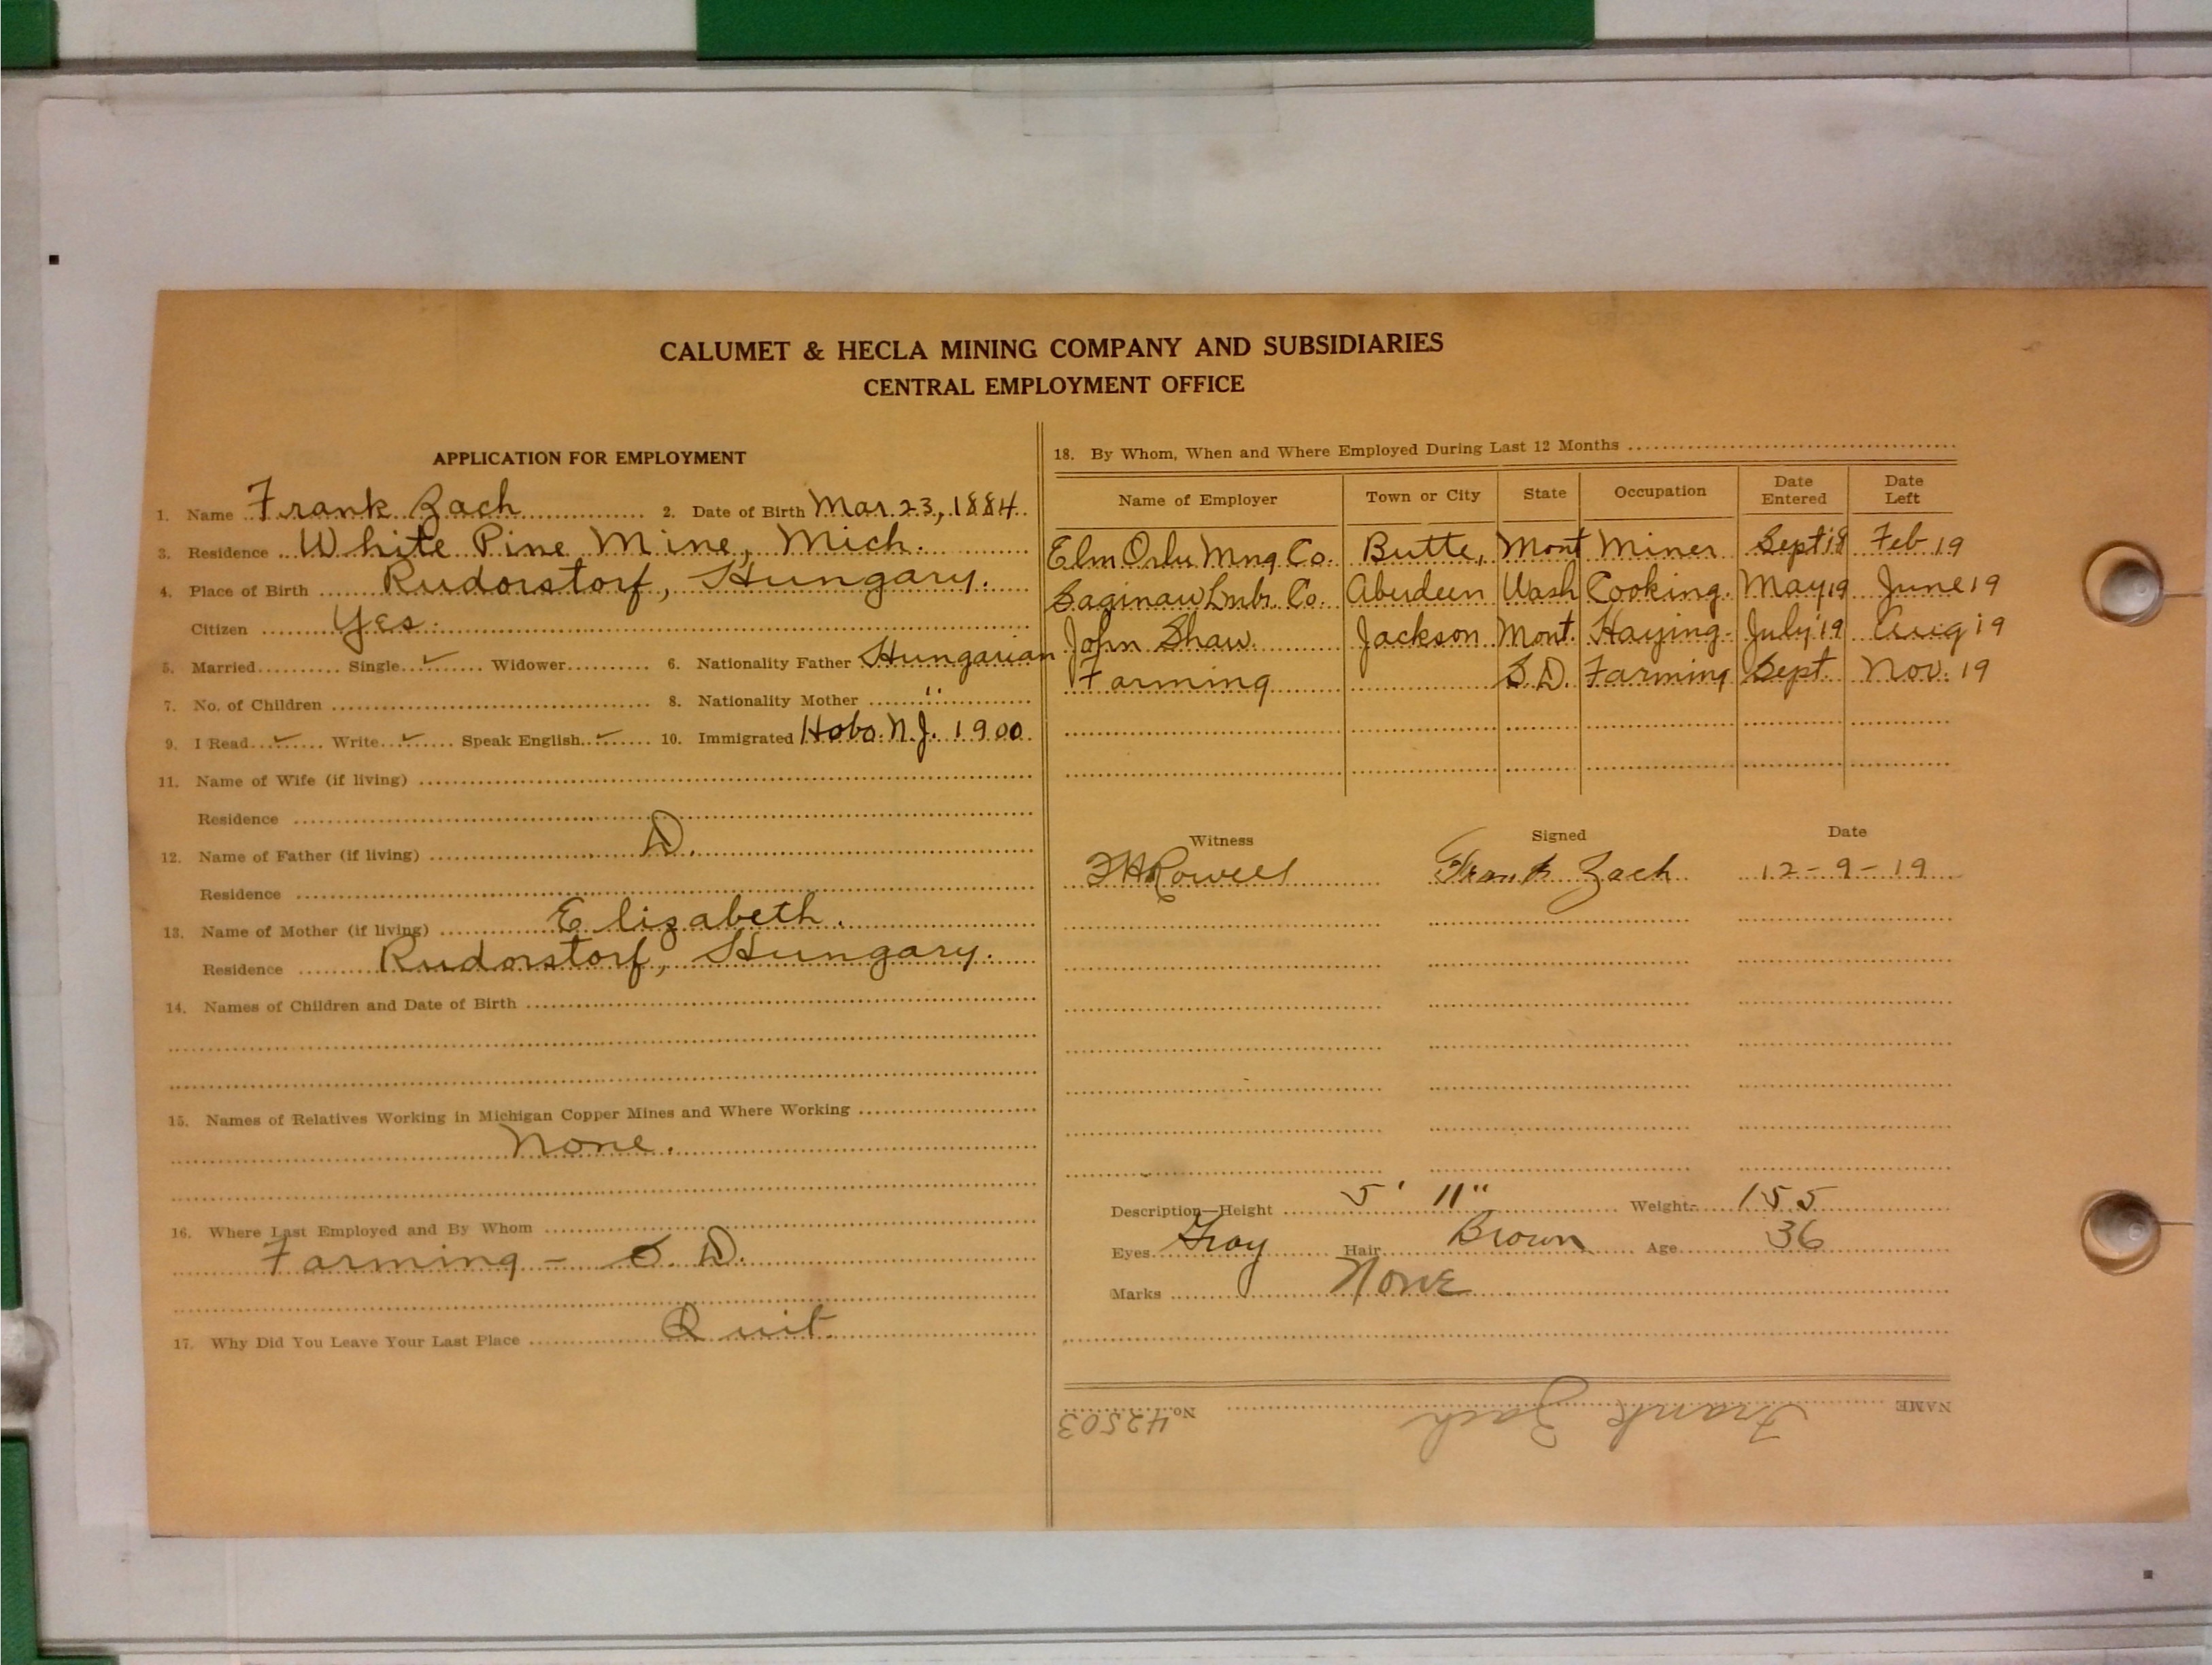 CALUMET & HECLA MINING COMPANY AND SUBSIDIARIES
CENTRAL EMPLOYMENT OFFICE
APPLICATION FOR EMPLOYMENT
1. Name Frank Zach 2. Date of Birth Mar. 23, 1884.
3. Residence White Pine Mine, Mich.
4. Place of Birth Rudorstorf, Hungary.
Citizen Yes.
5. Married Single ✓ Widower 6. Nationality Father Hungarian
7. No. of Children 8. Nationality Mother "
9. I Read ✓ Write ✓ Speak English ✓ 10. Immigrated Hobo. N.J. 1900.
11. Name of Wife (if living)
Residence
12. Name of Father (if living) D.
Residence
13. Name of Mother (if living) Elizabeth.
Residence Rudorstorf, Hungary.
14. Names of Children and Date of Birth
15. Names of Relatives Working in Michigan Copper Mines and Where Working
None.
16. Where Last Employed and By Whom
Farming - S. D.
17. Why Did You Leave Your Last Place Quit.
18. By Whom, When and Where Employed During Last 12 Months
Name of Employer Town or City State Occupation Date Entered Date Left
Elm Orlu Mng Co. Butte, Mont Miner Sept 18 Feb 19
Saginaw Lmbr. Co. Aberdeen Wash Cooking. May 19 June 19
John Shaw. Jackson Mont. Haying. July '19 Aug 19
Farming S.D. Farming Sept. Nov. 19
Witness Signed Date
Frank Zach 12-9-19
Description—Height 5' 11" Weight 155
Eyes Gray Hair Brown Age 36
Marks None
NAME Frank Zach No. 42503